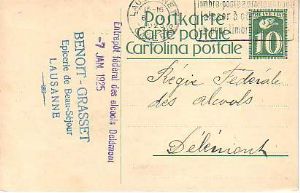 Postkarte
Carte postale
Cartolina postale
10
LAU
Entrepôt fédéral des alcools Delémont
-7 JAN 1925
BENOIT-GRASSET
Epicerie de Beau-Séjour
LAUSANNE
Régie Fédérale
des alcools
Delémont